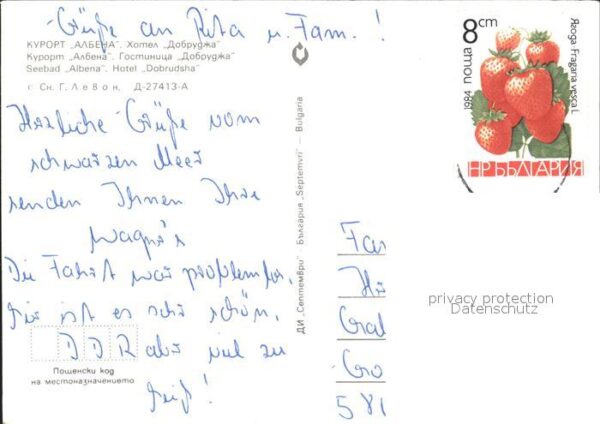 Grüße an Rita u. Fam. !
КУРОРТ „АЛБЕНА". Хотел „Добруджа"
Курорт „Албена". Гостиница „Добруджа"
Seebad "Albena". Hotel "Dobrudsha"
г Сн. Г. Левон, Д-27413-А
Herzliche Grüße vom
schwarzen Meer
senden Ihnen Ihre
Wagner's
Die Fahrt war problemlos,
hier ist es sehr schön,
DDR aber viel zu
heiß!
Пощенски код
на местоназначението
ДИ „Септември" България „Septemvri" — Bulgaria
Fam
Gro
581
8 cm
поща
1984
Ягода Fragaria vesca L.
НР БЪЛГАРИЯ
privacy protection
Datenschutz